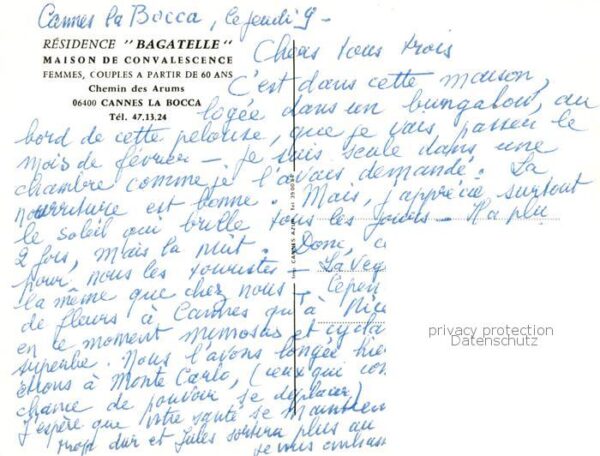 Cannes la Bocca, le jeudi 9 -
RÉSIDENCE "BAGATELLE"
MAISON DE CONVALESCENCE
FEMMES, COUPLES A PARTIR DE 60 ANS
Chemin des Arums
06400 CANNES LA BOCCA
Tél. 47.13.24
Chers tous trois
C'est dans cette maison,
logée dans un bungalow, au
bord de cette pelouse, que je vais passer le
mois de février - je suis seule dans une
chambre comme je l'avais demandé. La
nourriture est bonne. Mais, j'apprécie surtout
le soleil qui brille tous les jours - Il a plu
2 fois, mais la nuit. Donc,
pour nous les touristes - La Veg
la même que chez nous -
de fleurs à Cannes qu'à Nice
en ce moment mimosas et cycla
superbe. Nous l'avons longée hie
étions à Monte Carlo, (ceux qui
chance de pouvoir se déplacer)
J'espère que votre santé se maintien
trop dur et Jules sortira plus au
je vous embrasse
privacy protection
Datenschutz